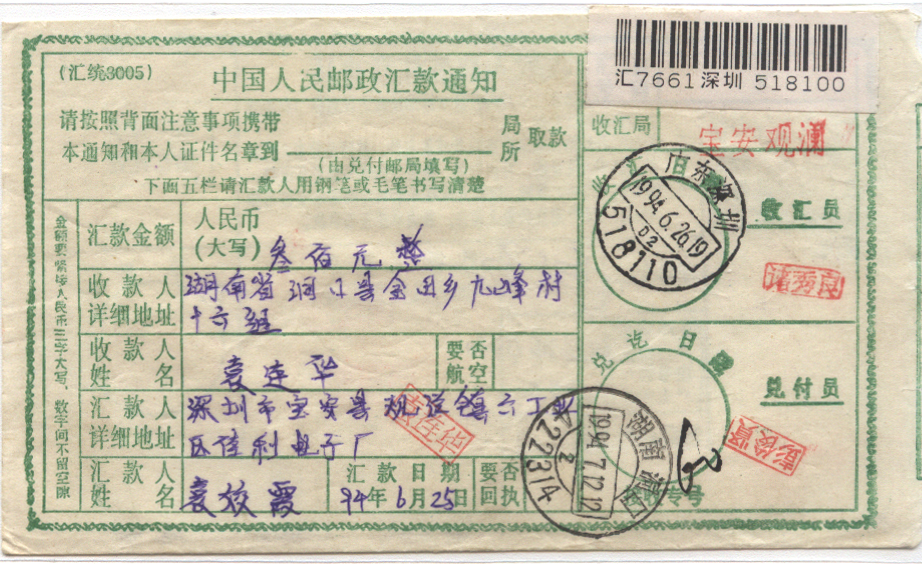 汇7661深圳 518100
(汇统3005)
中国人民邮政汇款通知
请按照背面注意事项携带
本通知和本人证件名章到 局所 取款
(由兑付邮局填写)
下面五栏请汇款人用钢笔或毛笔书写清楚
收汇局
宝安观澜
广东深圳
1994.6.26.19
02
518110
收汇员
汇款金额
人民币
(大写)
叁佰元整
收款人
详细地址
湖南省洞口县金田乡九峰村
十六组
收款人
姓名
袁连华
要否
航空
汇款人
详细地址
深圳市宝安县观澜镇六工业
区佳利电子厂
汇款人
姓名
袁姣霞
汇款日期
94年6月25日
要否
回执
袁连华
兑讫日
兑付员
彭俊贤
湖南洞口
1994.7.12.12
2
422314
专号
金额要紧接人民币三字大写,数字间不留空隙